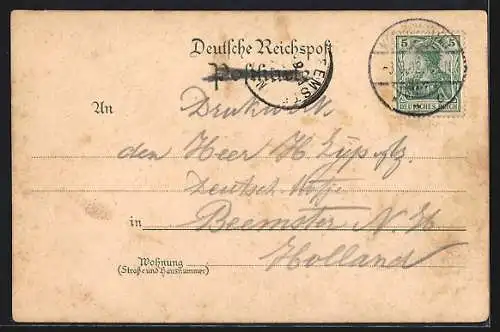 Deutsche Reichspost
Postkarte
5 5
DEUTSCHES REICH
An Drukwerk
den Heer H.
Deutsch
in Beemster N. H.
Holland
Wohnung
(Straße und Hausnummer)